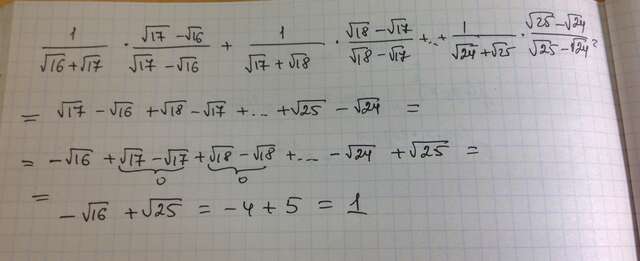 1/(√16+√17) · (√17-√16)/(√17-√16) + 1/(√17+√18) · (√18-√17)/(√18-√17) +...+ 1/(√24+√25) · (√25-√24)/(√25-√24) =
= √17 - √16 + √18 - √17 + ... + √25 - √24 =
= -√16 + √17 - √17 + √18 - √18 + ... - √24 + √25 =
0 0
= -√16 + √25 = -4 + 5 = 1